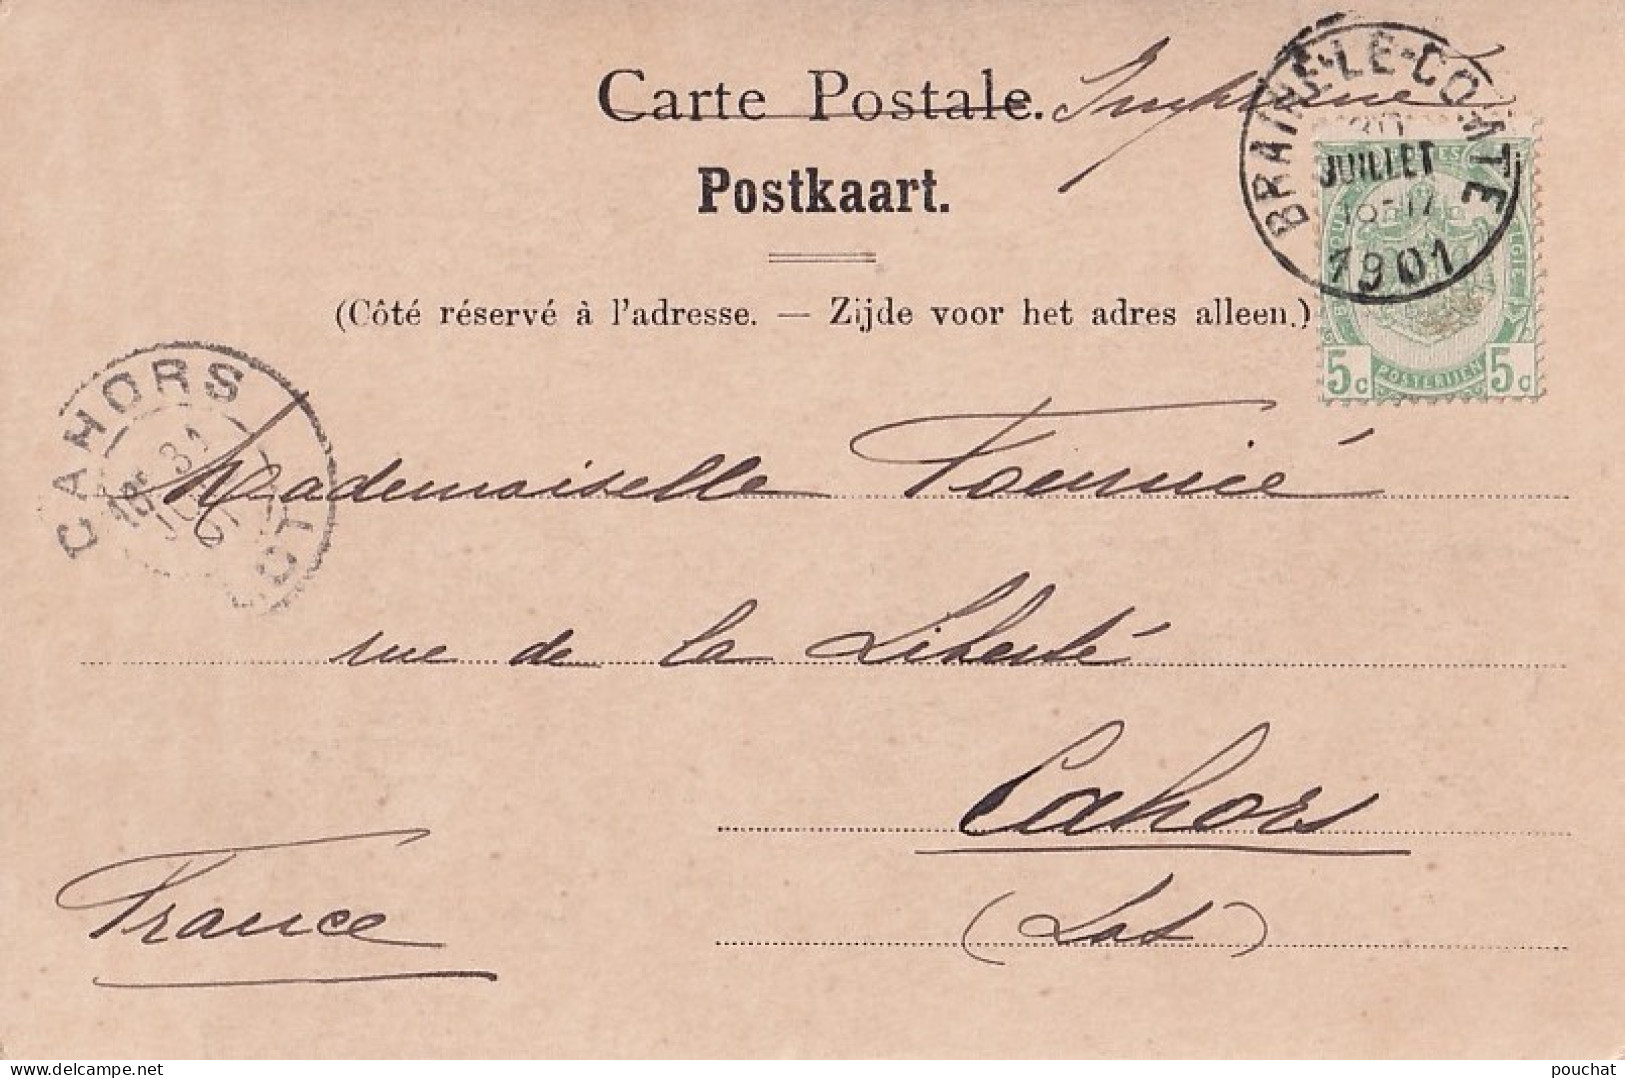 Carte Postale. Imprimé
Postkaart.
(Côté réservé à l'adresse. — Zijde voor het adres alleen.)
BRAINE-LE-COMTE
30
JUILLET
1901
5c POSTERIJEN 5c
CAHORS
31
LOT
Mademoiselle Fournié
rue de la Liberté
Cahors
(Lot)
France
delcampe.net
pouchat